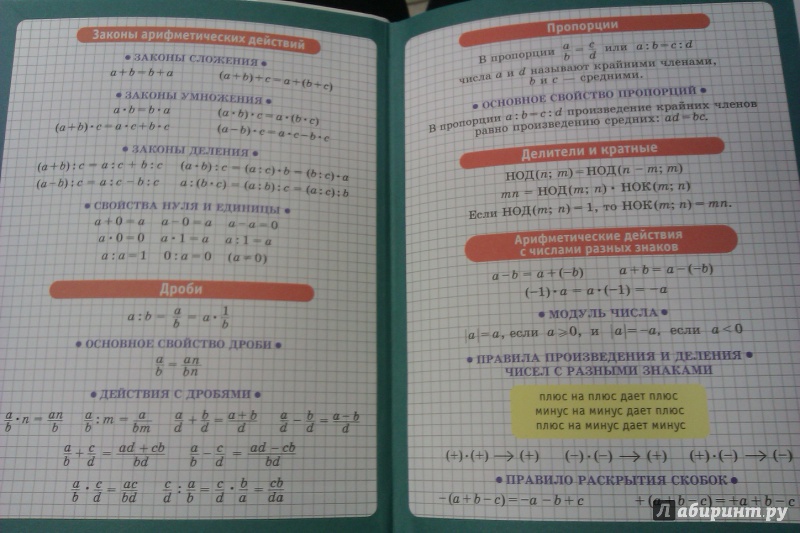 Законы арифметических действий
• ЗАКОНЫ СЛОЖЕНИЯ •
a+b=b+a (a+b)+c=a+(b+c)
• ЗАКОНЫ УМНОЖЕНИЯ •
a·b=b·a (a·b)·c=a·(b·c)
(a+b)·c=a·c+b·c (a−b)·c=a·c−b·c
• ЗАКОНЫ ДЕЛЕНИЯ •
(a+b):c=a:c+b:c (a·b):c=(a:c)·b=(b:c)·a
(a−b):c=a:c−b:c a:(b·c)=(a:b):c=(a:c):b
• СВОЙСТВА НУЛЯ И ЕДИНИЦЫ •
a+0=a a−0=a a−a=0
a·0=0 a·1=a a:1=a
a:a=1 0:a=0
Дроби
a:b = a/b = a·1/b
• ОСНОВНОЕ СВОЙСТВО ДРОБИ •
a/b = an/bn
• ДЕЙСТВИЯ С ДРОБЯМИ •
a/b·n = an/b a/b:m = a/bm a/d + b/d = a+b/d a/d − b/d = a−b/d
a/b + c/d = ad+cb/bd a/b − c/d = ad−cb/bd
a/b · c/d = ac/bd c/d : a/b = c/d · b/a = cb/da
Пропорции
В пропорции a/b = c/d или a:b=c:d
числа a и d называют крайними членами,
b и c — средними.
• ОСНОВНОЕ СВОЙСТВО ПРОПОРЦИЙ •
В пропорции a:b=c:d произведение крайних членов
равно произведению средних: ad=bc.
Делители и кратные
НОД(n; m)=НОД(n − m; m)
mn = НОД(m; n) · НОК(m; n)
Если НОД(m; n)=1, то НОК(m; n)=mn.
Арифметические действия
с числами разных знаков
a−b=a+(−b) a+b=a−(−b)
(−1)·a=a·(−1)=−a
• МОДУЛЬ ЧИСЛА •
|a|=a, если a⩾0, и |a|=−a, если a<0
• ПРАВИЛА ПРОИЗВЕДЕНИЯ И ДЕЛЕНИЯ •
ЧИСЕЛ С РАЗНЫМИ ЗНАКАМИ
плюс на плюс дает плюс
минус на минус дает плюс
плюс на минус дает минус
(+)·(+) → (+) (−)·(−) → (+) (+)·(−) → (−)
• ПРАВИЛО РАСКРЫТИЯ СКОБОК •
−(a+b−c)=−a−b+c +(a+b−c)=+a+b−c
Лабиринт.ру